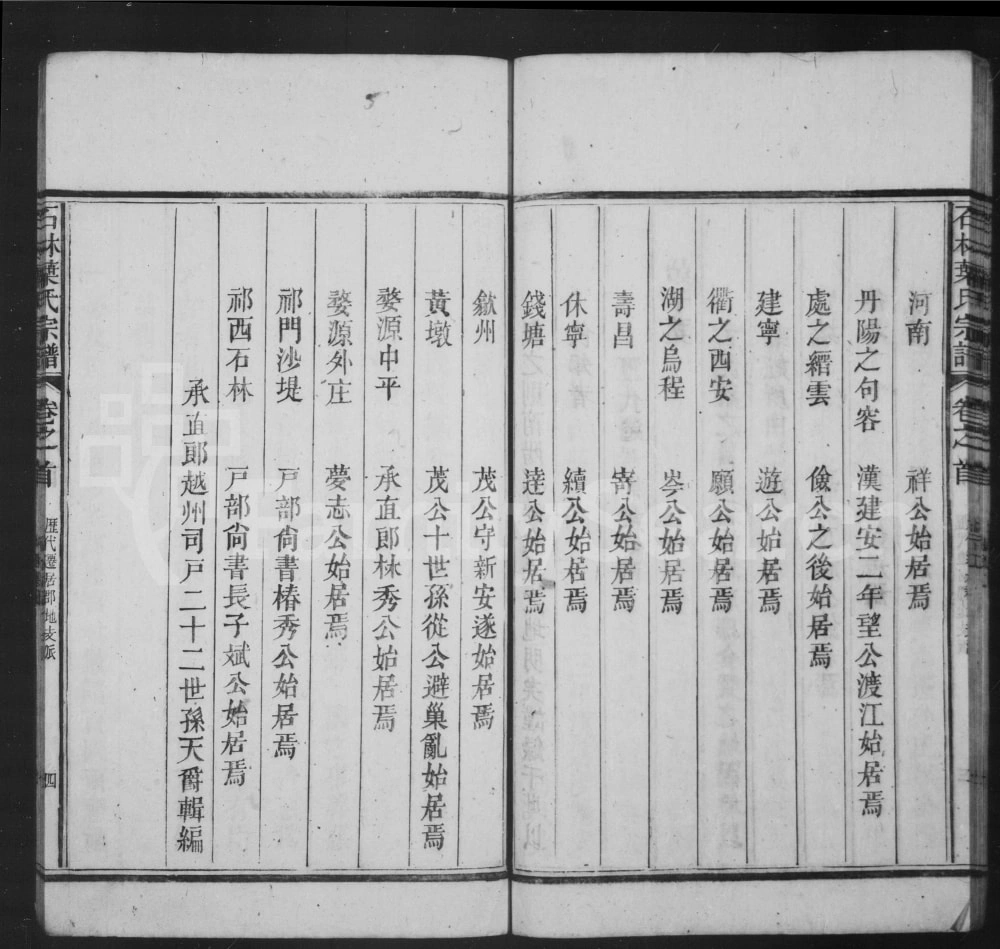 石林葉氏宗譜 卷之首
河南 祥公始居焉
丹陽之句容 漢建安二年望公渡江始居焉
處之縉雲 儉公之後始居焉
建寧 遊公始居焉
衢之西安 願公始居焉
湖之烏程 岑公始居焉
壽昌 寄公始居焉
休寧 續公始居焉
錢塘 逵公始居焉
歙州 茂公守新安遂始居焉
黃墩 茂公十世孫從公避巢亂始居焉
婺源中平 承直郎林秀公始居焉
婺源外庄 夢志公始居焉
祁門沙堤 戸部尙書椿秀公始居焉
祁西石林 戸部尙書長子斌公始居焉
承直郎越州司戸二十二世孫天爵輯編
石林葉氏宗譜 卷之首 歷代遷居郡地支派 四